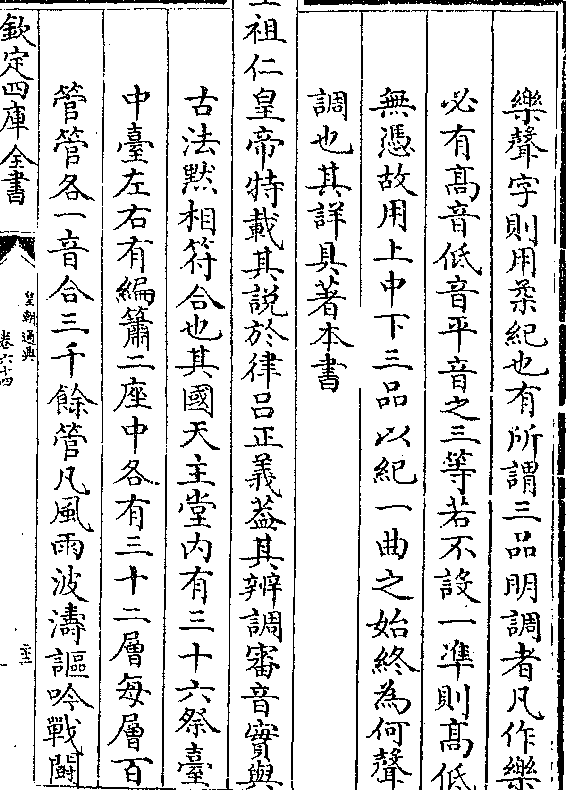 樂聲字則用柔紀也有所謂三品明調者凡作樂
必有髙音低音平音之三等若不設一凖則髙低
無憑故用上中下三品以紀一曲之始終為何聲
調也其詳具著本書
祖仁皇帝特載其説於律吕正義葢其辨調審音實與
古法黙相符合也其國天主堂内有三十六祭臺
中臺左右有編簫二座中各有三十二層每層百
管管各一音合三千餘管凡風雨波濤謳吟戰鬭
欽定四庫全書
皇朝通典
卷六十四